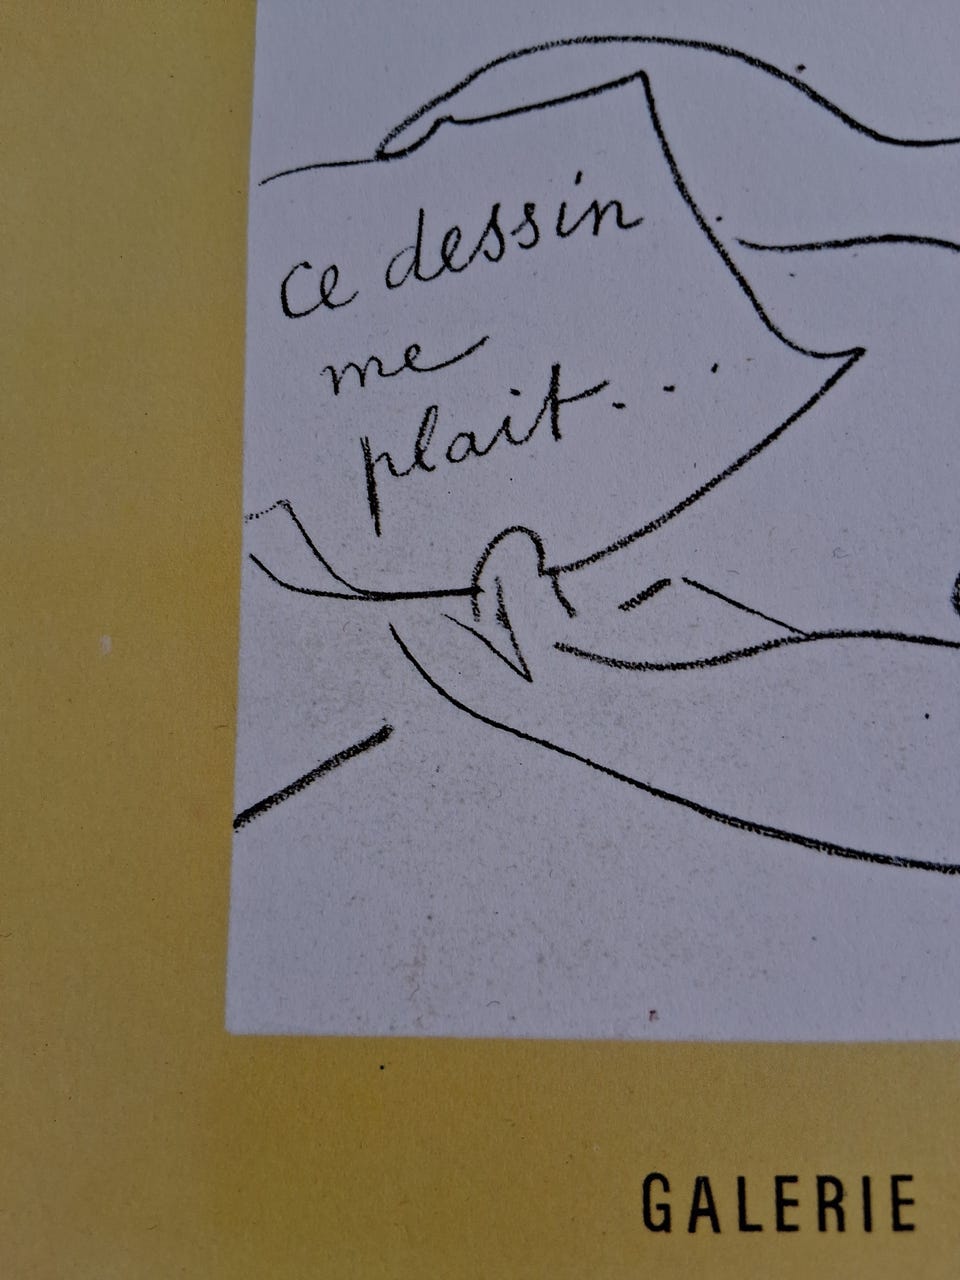 ce dessin
me
plait...
GALERIE